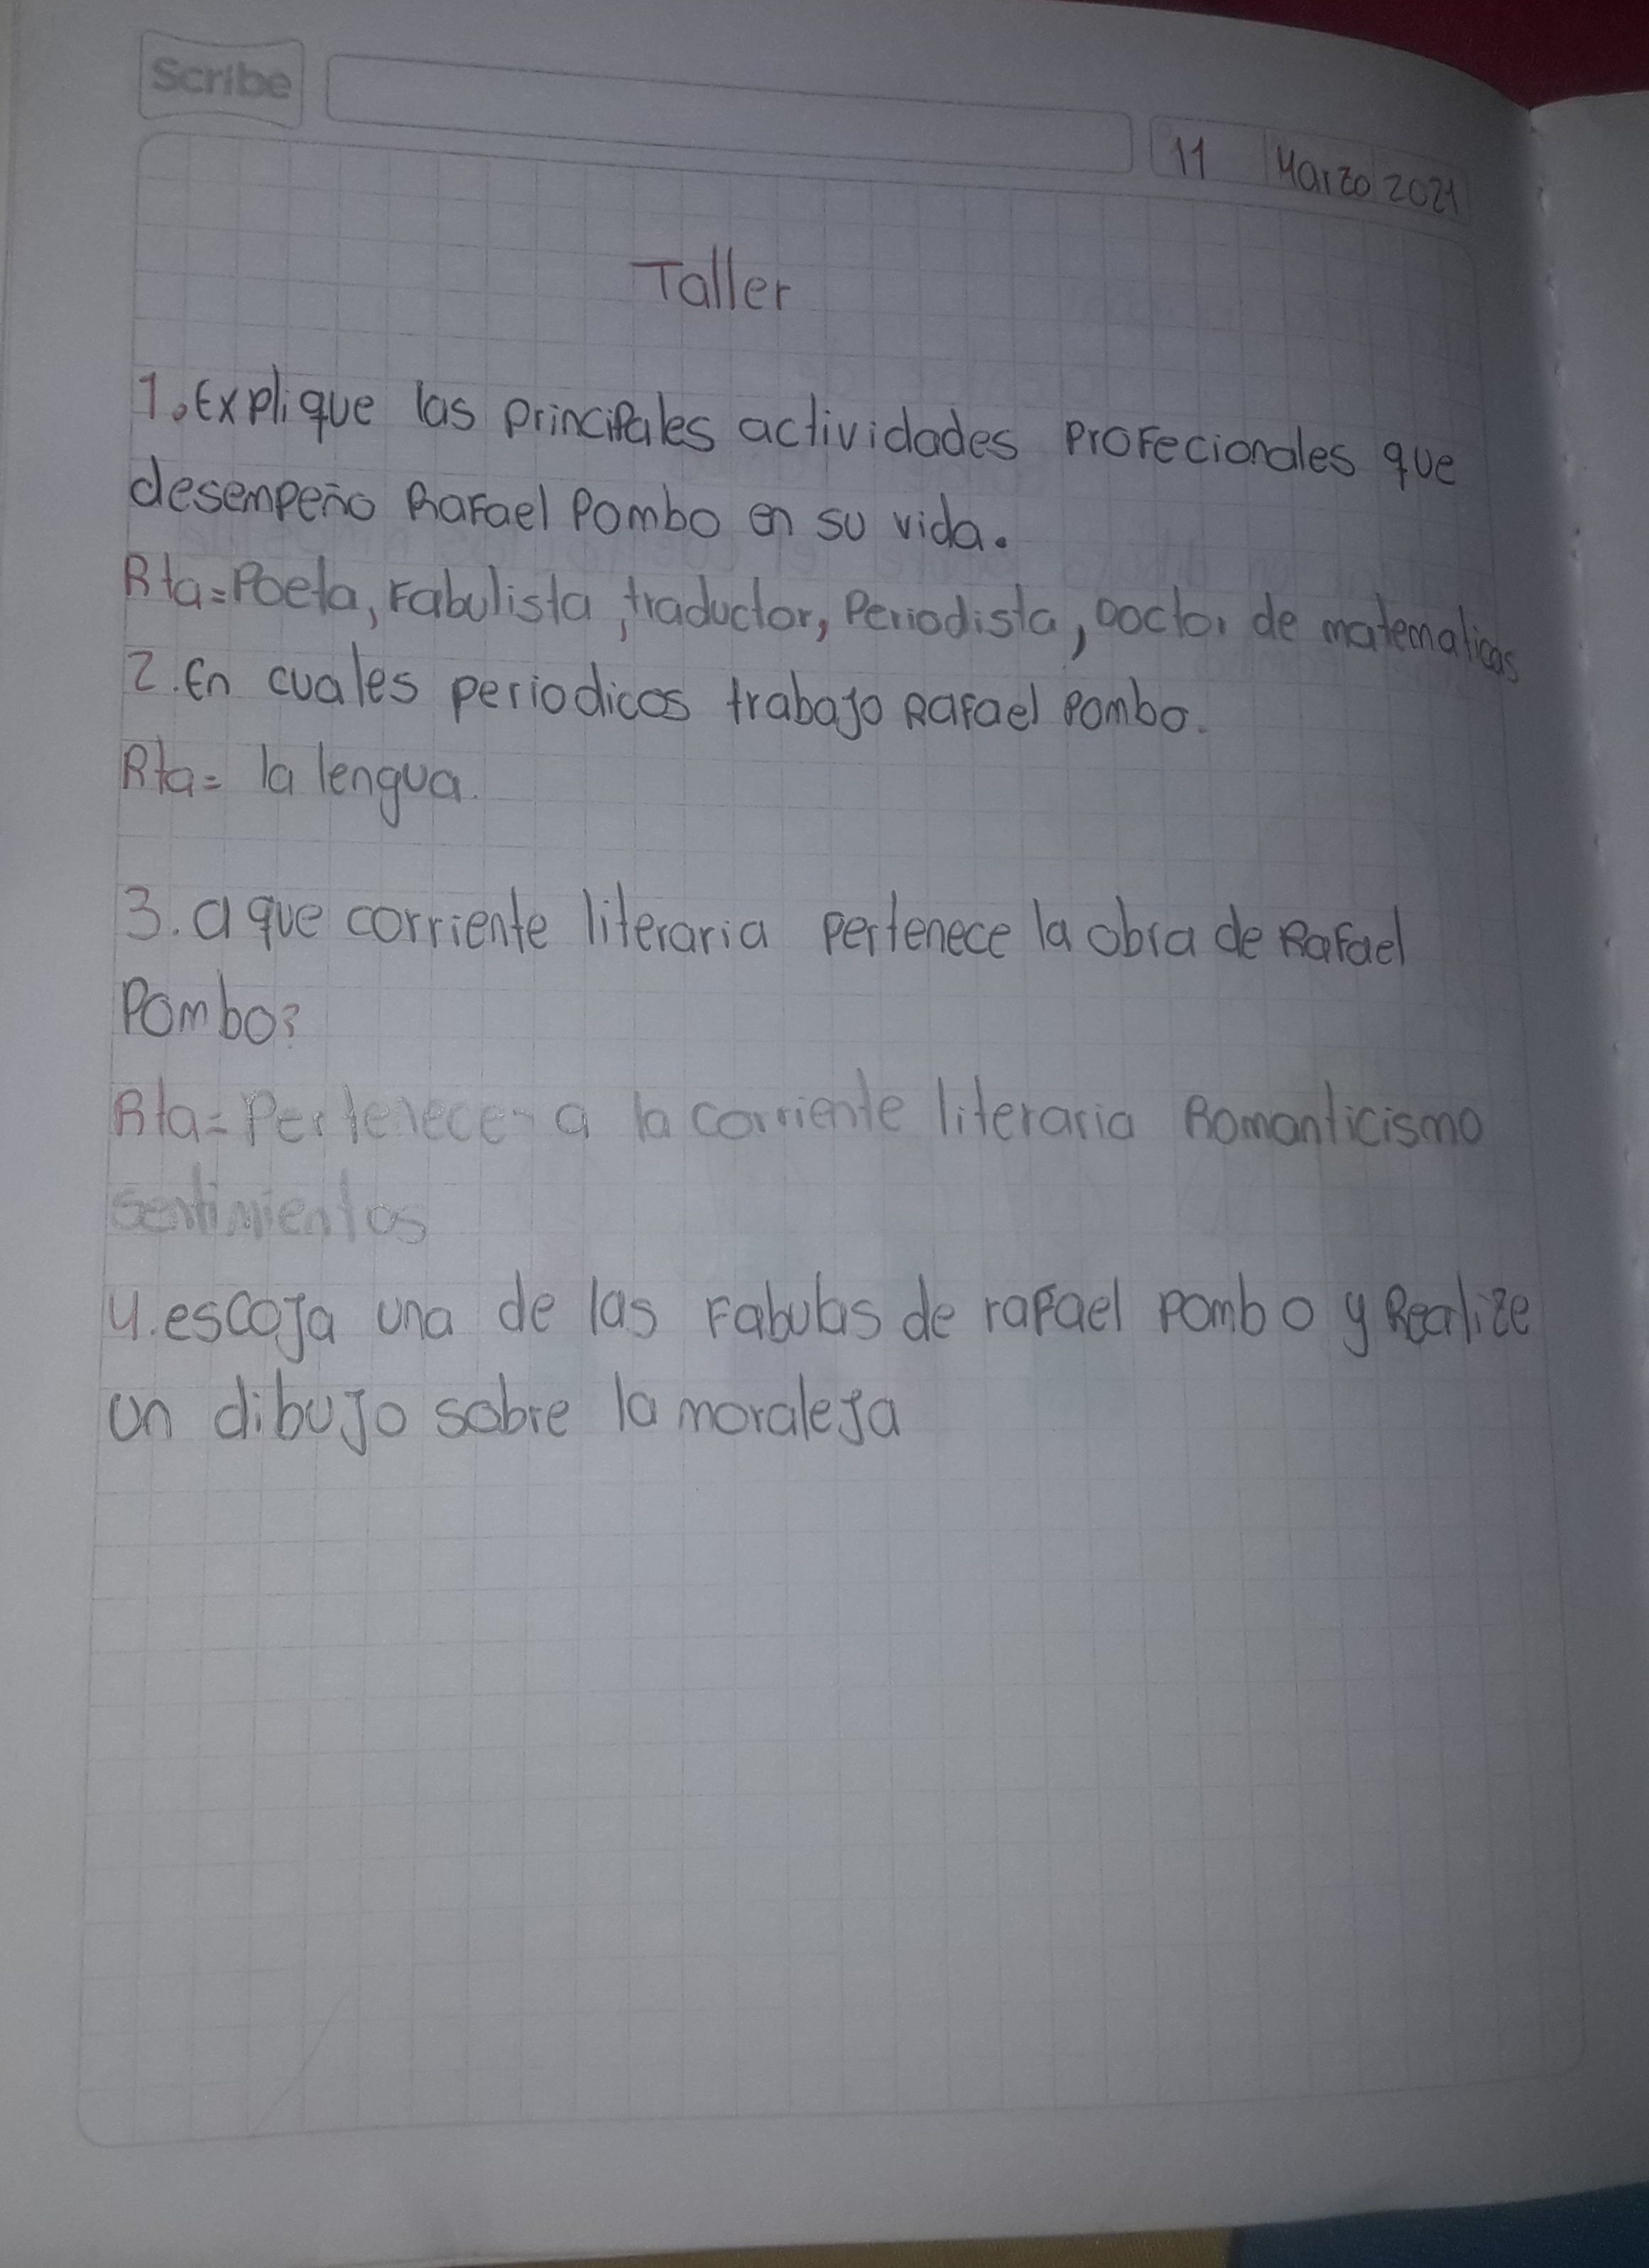 Scribe
11 Marzo 2021
Taller
1. Explique las principales actividades profecionales que
desempeño Rafael Pombo en su vida.
Rta=Poeta, Fabulista, traductor, Periodista, Doctor de matematicas
2. En cuales periodicos trabajo Rafael Pombo.
Rta= la lengua.
3. a que corriente literaria pertenece la obra de Rafael
Pombo?
Rta= Pertenece a la corriente literaria Romanticismo
sentimientos
4. escoja una de las Fabulas de rafael pombo y Realize
un dibujo sobre la moraleja